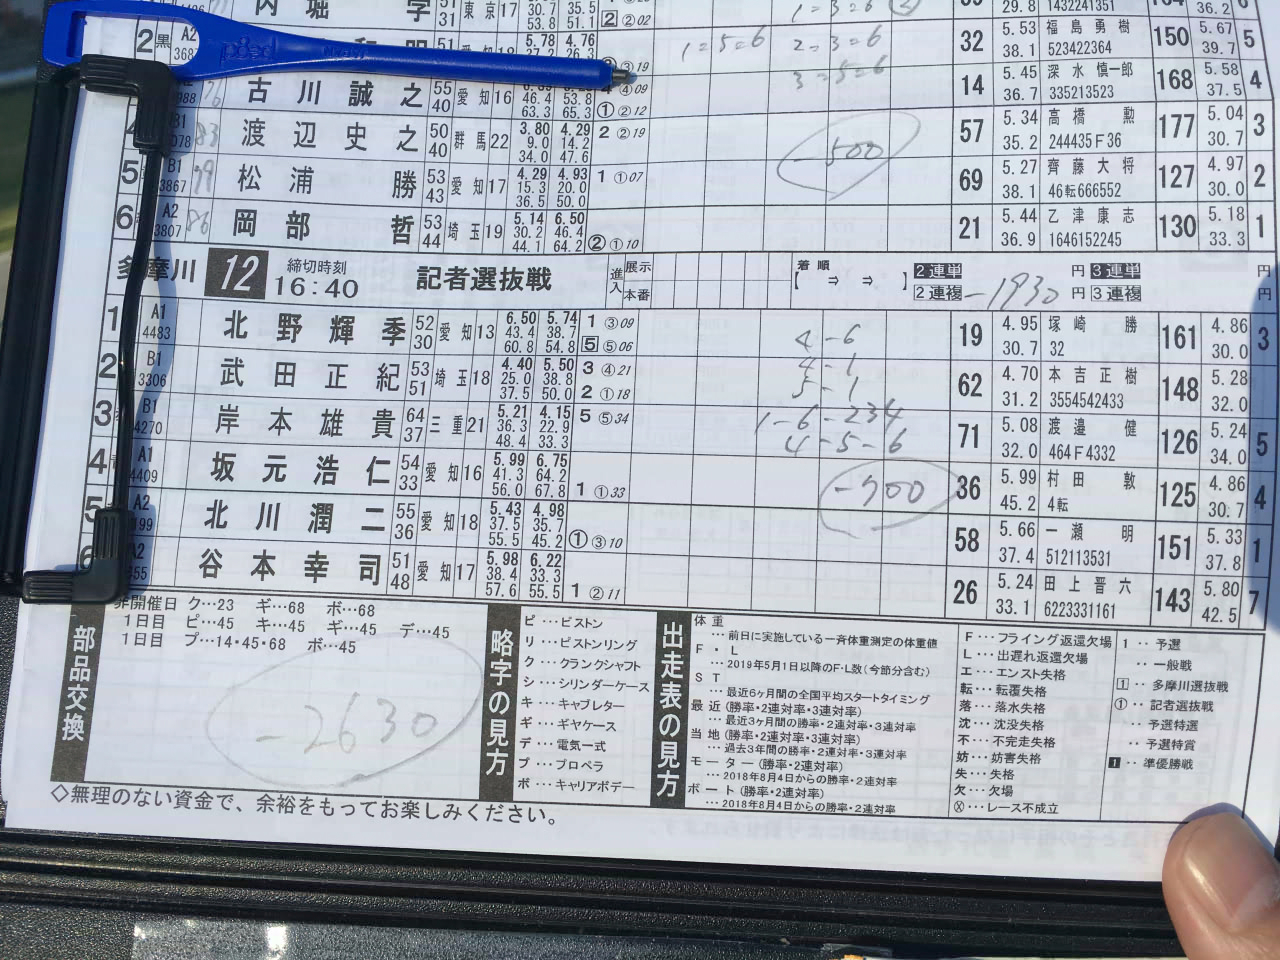 内堀 学 51 31 東京17 53.8 51.1 ②02 1=3=6 29.8 1432241351 36.2 6
2 黒 A2 5.78 4.76 ③19 1=5=6 2=3=6 32 5.53 38.1 福島勇樹 523422364 150 5.67 39.7 5
古川誠之 55 40 愛知16 46.4 53.8 63.3 65.3 ④09 ①②12 3=5=6 14 5.45 36.7 深水慎一郎 335213523 168 5.58 37.5 4
B1 83 渡辺史之 50 40 群馬22 3.80 4.29 9.0 14.2 34.0 47.6 2②19 -500 57 5.34 35.2 高橋勲 244435F36 177 5.04 30.7 3
5 B1 3867 79 松浦勝 53 43 愛知17 4.29 4.93 15.3 20.0 36.5 50.0 1①07 69 5.27 38.1 齊藤大将 46転666552 127 4.97 30.0 2
6 A2 3807 86 岡部哲 53 44 埼玉19 5.14 6.50 30.2 46.4 44.1 64.2 ②①10 21 5.44 36.9 乙津康志 1646152245 130 5.18 33.3 1
多摩川 12 締切時刻 16:40 記者選抜戦 進入 展示 本番 着順 【 ⇒ ⇒ 】 2連単 円 3連単 円
2連複 -1930 円 3連複 円
1 A1 4483 北野輝季 52 30 愛知13 6.50 5.74 43.4 38.7 60.8 54.8 1③09 5⑤06 4-6 19 4.95 30.7 塚崎勝 32 161 4.86 30.0 3
2 B1 3306 武田正紀 53 51 埼玉18 4.40 5.50 25.0 38.8 37.5 50.0 3④21 2①18 4-1 5-1 62 4.70 31.2 本吉正樹 3554542433 148 5.28 32.0
3 B1 4270 岸本雄貴 64 37 三重21 5.21 4.15 36.3 22.9 48.4 33.3 5⑤34 1-6-234 4-5-6 71 5.08 32.0 渡邉健 464F4332 126 5.24 34.0 5
4 A1 4409 坂元浩仁 54 33 愛知16 5.99 6.75 41.3 64.2 56.0 67.8 1①33 -700 36 5.99 45.2 村田敦 4転 125 4.86 30.7 4
5 A2 北川潤二 55 36 愛知18 5.43 4.98 37.5 35.7 55.5 45.2 ①③10 58 5.66 37.4 一瀬明 512113531 151 5.33 37.8 1
A2 谷本幸司 51 48 愛知17 5.98 6.22 38.4 33.3 57.6 55.5 1②11 26 5.24 33.1 田上晋六 6223331161 143 5.80 42.5 7
部品交換
非開催日 ク…23 ギ…68 ボ…68
1日目 ピ…45 キ…45 ギ…45 デ…45
1日目 プ…14・45・68 ボ…45
-2630
略字の見方
ピ…ピストン
リ…ピストンリング
ク…クランクシャフト
シ…シリンダーケース
キ…キャブレター
ギ…ギヤケース
デ…電気一式
プ…プロペラ
ボ…キャリアボデー
出走表の見方
体重
…前日に実施している一斉体重測定の体重値
F・L
…2019年5月1日以降のF・L数(今節分含む)
ST
…最近6ヶ月間の全国平均スタートタイミング
最近(勝率・2連対率・3連対率)
…最近3ヶ月間の勝率・2連対率・3連対率
当地(勝率・2連対率・3連対率)
…過去3年間の勝率・2連対率・3連対率
モーター(勝率・2連対率)
…2018年8月4日からの勝率・2連対率
ボート(勝率・2連対率)
…2018年8月4日からの勝率・2連対率
F…フライング返還欠場
L…出遅れ返還欠場
エ…エンスト失格
転…転覆失格
落…落水失格
沈…沈没失格
不…不完走失格
妨…妨害失格
失…失格
欠…欠場
ⓧ…レース不成立
1‥予選
‥一般戦
1‥多摩川選抜戦
①‥記者選抜戦
‥予選特選
‥予選特賞
1‥準優勝戦
◇無理のない資金で、余裕をもってお楽しみください。